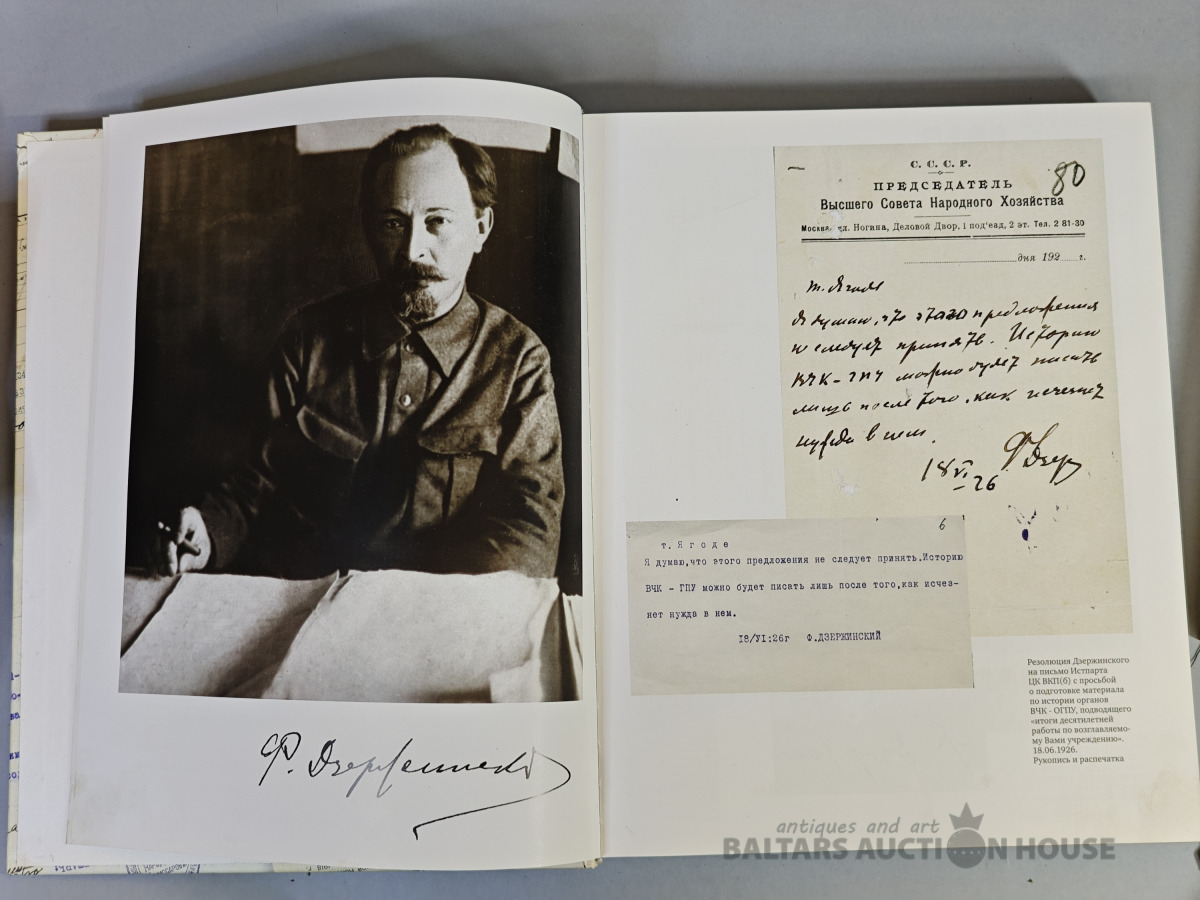 Ф. Дзержинский
С. С. С. Р.
80
ПРЕДСЕДАТЕЛЬ
Высшего Совета Народного Хозяйства
Москва, пл. Ногина, Деловой Двор, 1 под'езд, 2 эт. Тел. 2 81-30
дня 192 г.
т. Ягоде
Я думаю, что этого предложения
не следует принять. Историю
ВЧК - ГПУ можно будет писать
лишь после того, как исчезнет
нужда в нем.
18/VI - 26 Ф Дзер
6
т. Ягоде
Я думаю,что этого предложения не следует принять.Историю
ВЧК - ГПУ можно будет писать лишь после того,как исчез-
нет нужда в нем.
18/VI:26г Ф.ДЗЕРЖИНСКИЙ
Резолюция Дзержинского
на письмо Истпарта
ЦК ВКП(б) с просьбой
о подготовке материала
по истории органов
ВЧК - ОГПУ, подводящего
«итоги десятилетней
работы по возглавляемо-
му Вами учреждению».
18.06.1926.
Рукопись и распечатка
antiques and art
BALTARS AUCTION HOUSE